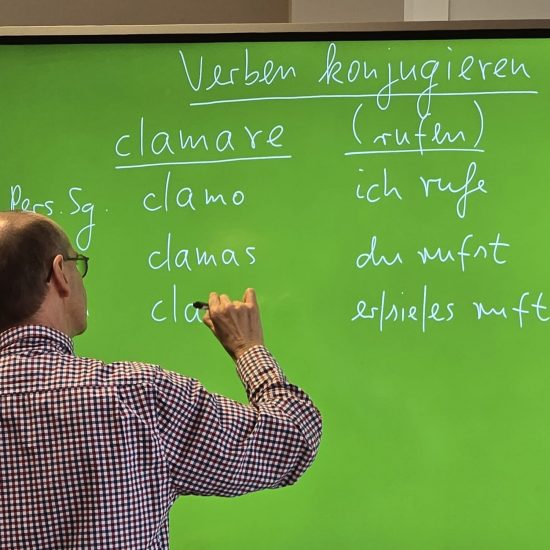 Verben konjugieren
clamare (rufen)
Pers. Sg. clamo ich rufe
clamas du rufst
cla er/sie/es ruft